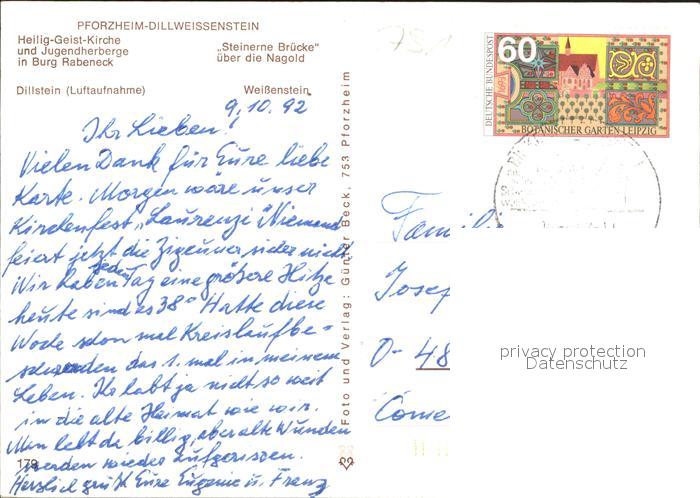 PFORZHEIM-DILLWEISSENSTEIN
Heilig-Geist-Kirche
und Jugendherberge
in Burg Rabeneck
„Steinerne Brücke"
über die Nagold
Dillstein (Luftaufnahme)
Weißenstein
9,10.92
Ihr Lieben!
Vielen Dank für Eure liebe
Karte. Morgen wäre unser
Kirchenfest „Laurenzi" Niemand
feiert jetzt die Zigeuner sicher nicht
Wir haben jeden Tag eine größere Hitze
heute sind es 38° Hatte diese
Woche schon mal Kreislaufbe-
schwerden das 1. mal in meinem
Leben. Ihr habt ja nicht so weit
in die alte Heimat wie wir.
Man lebt da billig, aber alte Wunden
werden wieder aufgerissen.
Herzlich grüßt Eure Eugenie u. Franz
179
Foto und Verlag: Günter Beck, 753 Pforzheim
75
DEUTSCHE BUNDESPOST
60
BOTANISCHER GARTEN LEIPZIG
Famili
Josef
O- 48
privacy protection
Datenschutz